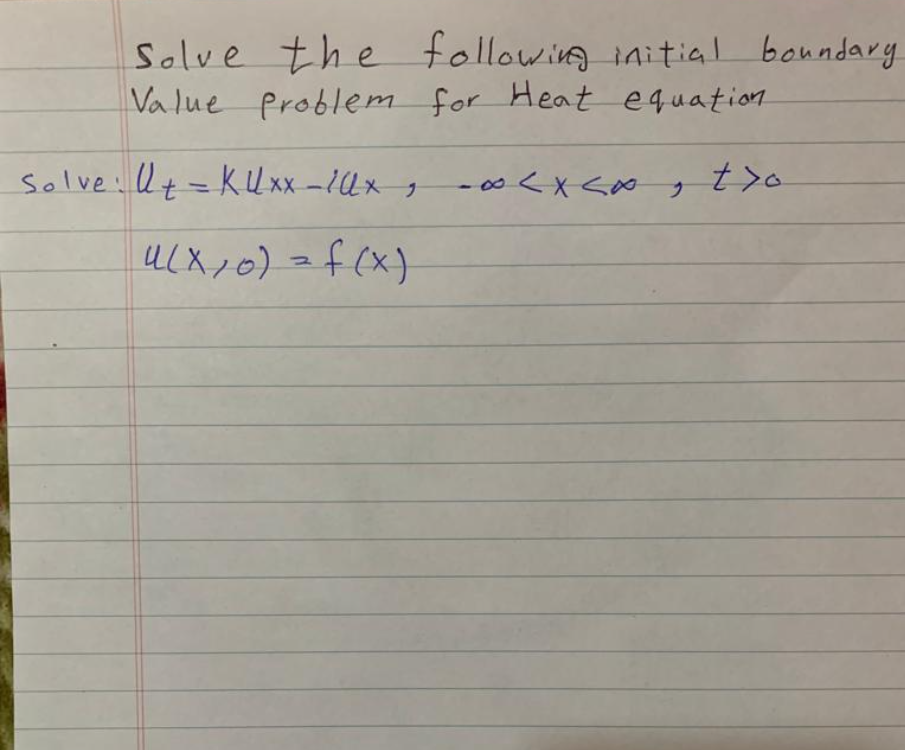 Solve the following initial boundary
Value problem for Heat equation
Solve: Ut = KUxx - lUx , -∞ < x < ∞ , t > 0
u(x,0) = f(x)